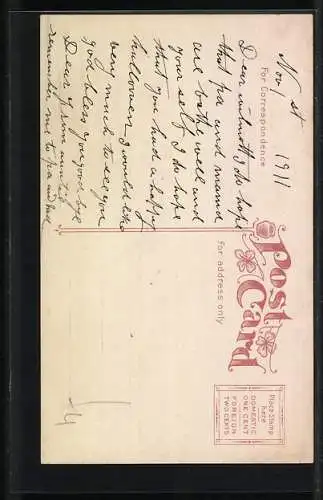 Nov 1st 1911
Dear I do hope
that pa and mama
are both well and
your self I do hope
that you had a happy
hallowen I would like
very much to see you
god bless you good bye
Dear from auntie
remember me to pa and
For Correspondence
Post
Card
for address only
Place Stamp
here
DOMESTIC
ONE CENT
FOREIGN
TWO CENTS